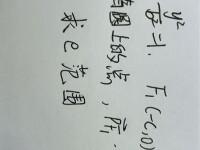 y²/b²=1. F₁(-c,0)
圆上的点, PF₁·
求e范围